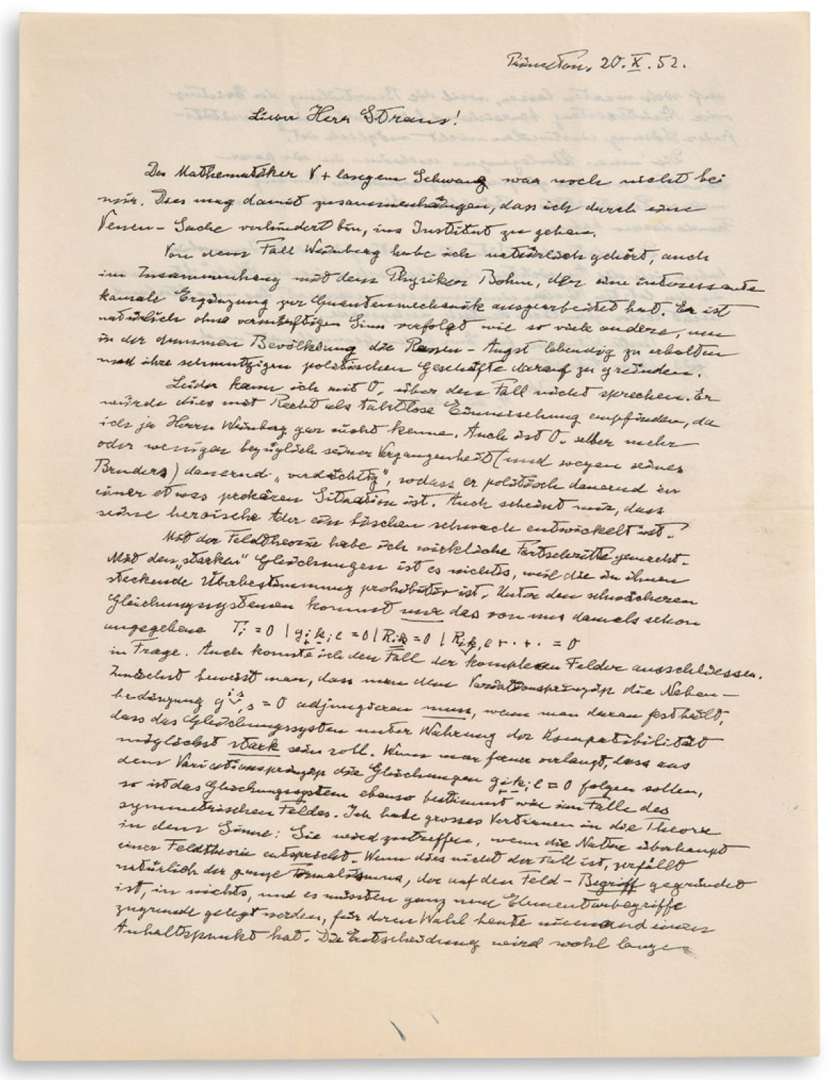 Princeton. 20. X. 52.
Lieber Herr Straus!
Der Mathematiker V + langem Schwanz war noch nicht bei
mir. Dies mag damit zusammenhängen, dass ich durch eine
Venen-Sache verhindert bin, ins Institut zu gehen.
Von dem Fall Weinberg habe ich natürlich gehört, auch
im Zusammenhang mit dem Physiker Bohm, der eine interessante
kausale Ergänzung zur Quantenmechanik ausgearbeitet hat. Er ist
natürlich ohne vernünftigen Sinn verfolgt wie so viele andere, um
in der dummen Bevölkerung die Russen-Angst lebendig zu erhalten
und ihre schmutzigen politischen Geschäfte darauf zu gründen.
Leider kann ich mit O. über den Fall nicht sprechen. Er
würde dies mit Recht als taktlose Einmischung empfinden, da
ich ja Herrn Weinberg gar nicht kenne. Auch ist O. selber mehr
oder weniger bezüglich seiner Vergangenheit (und wegen seines
Bruders) dauernd „verdächtig", sodass er politisch dauernd in
einer etwas prekären Situation ist. Auch scheint mir, dass
seine heroische Ader ein bischen schwach entwickelt ist.
Mit der Feldtheorie habe ich wirkliche Fortschritte gemacht.
Mit den „starken" Gleichungen ist es nichts, weil die in ihnen
steckende Überbestimmung prohibitiv ist. Unter den schwächeren
Gleichungssystemen kommt nur das von uns damals schon
angegebene Γi = 0 | gik;l = 0 | Rik = 0 | Rik,l + · + · = 0
in Frage. Auch konnte ich den Fall der komplexen Felder ausschliessen.
Zunächst beweist man, dass man dem Variationsprinzip die Neben-
bedingung g^is,s = 0 adjungieren muss, wenn man daran festhält,
dass das Gleichungssystem unter Wahrung der Kompatibilität
möglichst stark sein soll. Wenn man ferner verlangt, dass aus
dem Variationsprinzip die Gleichungen gik;l = 0 folgen sollen,
so ist das Gleichungssystem ebenso bestimmt wie im Falle des
symmetrischen Feldes. Ich habe grosses Vertrauen in die Theorie
in dem Sinne: Sie wird zutreffen, wenn die Natur überhaupt
einer Feldtheorie entspricht. Wenn dies nicht der Fall ist, zerfällt
natürlich der ganze Formalismus, der auf den Feld-Begriff gegründet
ist, in nichts, und es müssten ganz neue Elementarbegriffe
zugrunde gelegt werden, für deren Wahl heute niemand einen
Anhaltspunkt hat. Die Entscheidung wird wohl lange